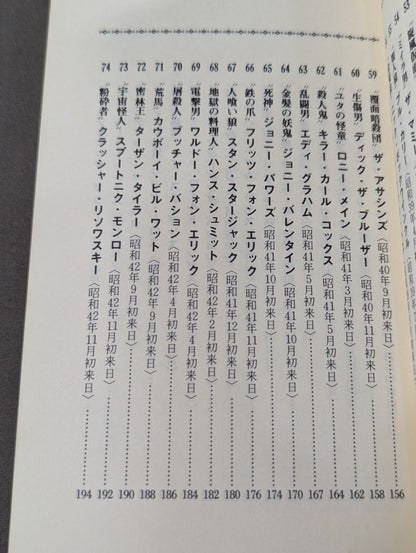 59 "覆面暗殺団" ザ・アサシンズ〈昭和40年9月初来日〉……156
60 "生傷男" ディック・ザ・ブルーザー〈昭和40年11月初来日〉……158
61 "ユタの怪童" ロニー・メイン〈昭和41年3月初来日〉……162
62 "殺人鬼" キラー・カール・コックス〈昭和41年5月初来日〉……164
63 "乱闘男" エディ・グラハム〈昭和41年5月初来日〉……167
64 "金髪の妖鬼" ジョニー・バレンタイン〈昭和41年10月初来日〉……170
65 "死神" ジョニー・パワーズ〈昭和41年10月初来日〉……174
66 "鉄の爪" フリッツ・フォン・エリック〈昭和41年11月初来日〉……176
67 "人喰い狼" スタン・スタージャック〈昭和41年12月初来日〉……180
68 "地獄の料理人" ハンス・シュミット〈昭和42年2月初来日〉……182
69 "電撃男" ワルドー・フォン・エリック〈昭和42年4月初来日〉……184
70 "屠殺人" ブッチャー・バション〈昭和42年4月初来日〉……186
71 "荒馬" カウボーイ・ビル・ワット〈昭和42年9月初来日〉……188
72 "密林王" ターザン・タイラー〈昭和42年9月初来日〉……190
73 "宇宙怪人" スプートニク・モンロー〈昭和42年11月初来日〉……192
74 "粉砕者" クラッシャー・リソワスキー〈昭和42年11月初来日〉……194